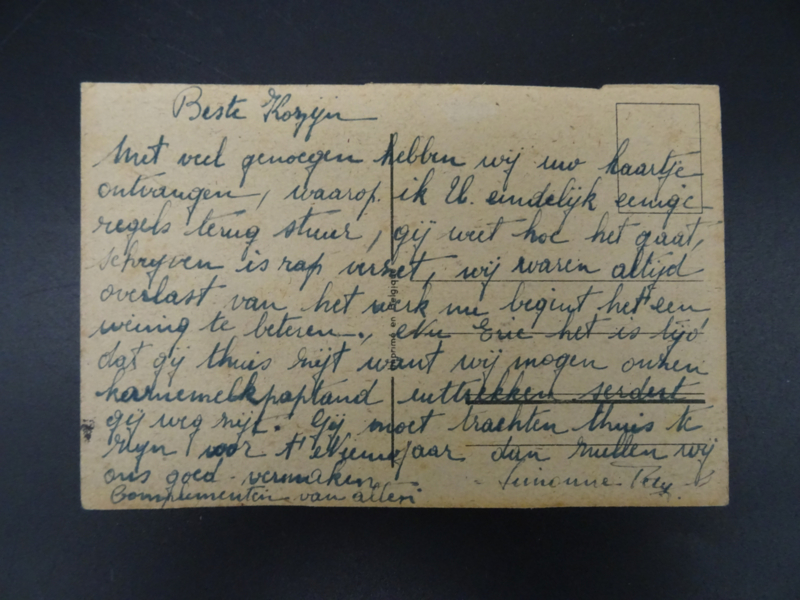 Beste Kozijn
Met veel genoegen hebben wij uw kaartje
ontvangen, waarop ik U. eindelijk eenige
regels terug stuur, gij weet hoe het gaat,
schrijven is rap verzet, wij waren altijd
overlast van het werk nu begint het een
weinig te beteren., Nu Eric het is tijd
dat gij thuis zijt want wij mogen onzen
karnemelkpaptand uittrekken serdert
gij weg zijt. Gij moet trachten thuis te
zijn voor 't Nieuwjaar dan zullen wij
ons goed vermaken
Complimenten van allen
Simonne
en Belgique